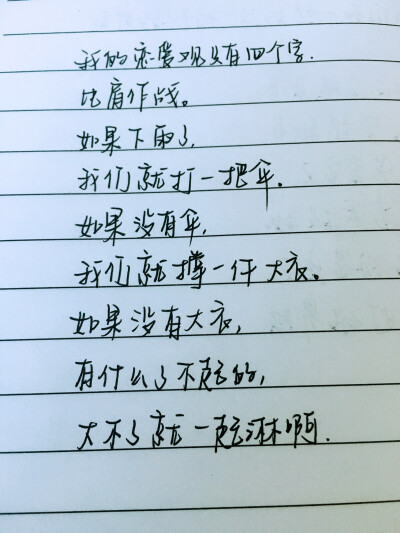 我的恋爱观只有四个字.
比肩作战。
如果下雨了,
我们就打一把伞.
如果没有伞,
我们就撑一件大衣。
如果没有大衣,
有什么了不起的,
大不了就一起淋啊.